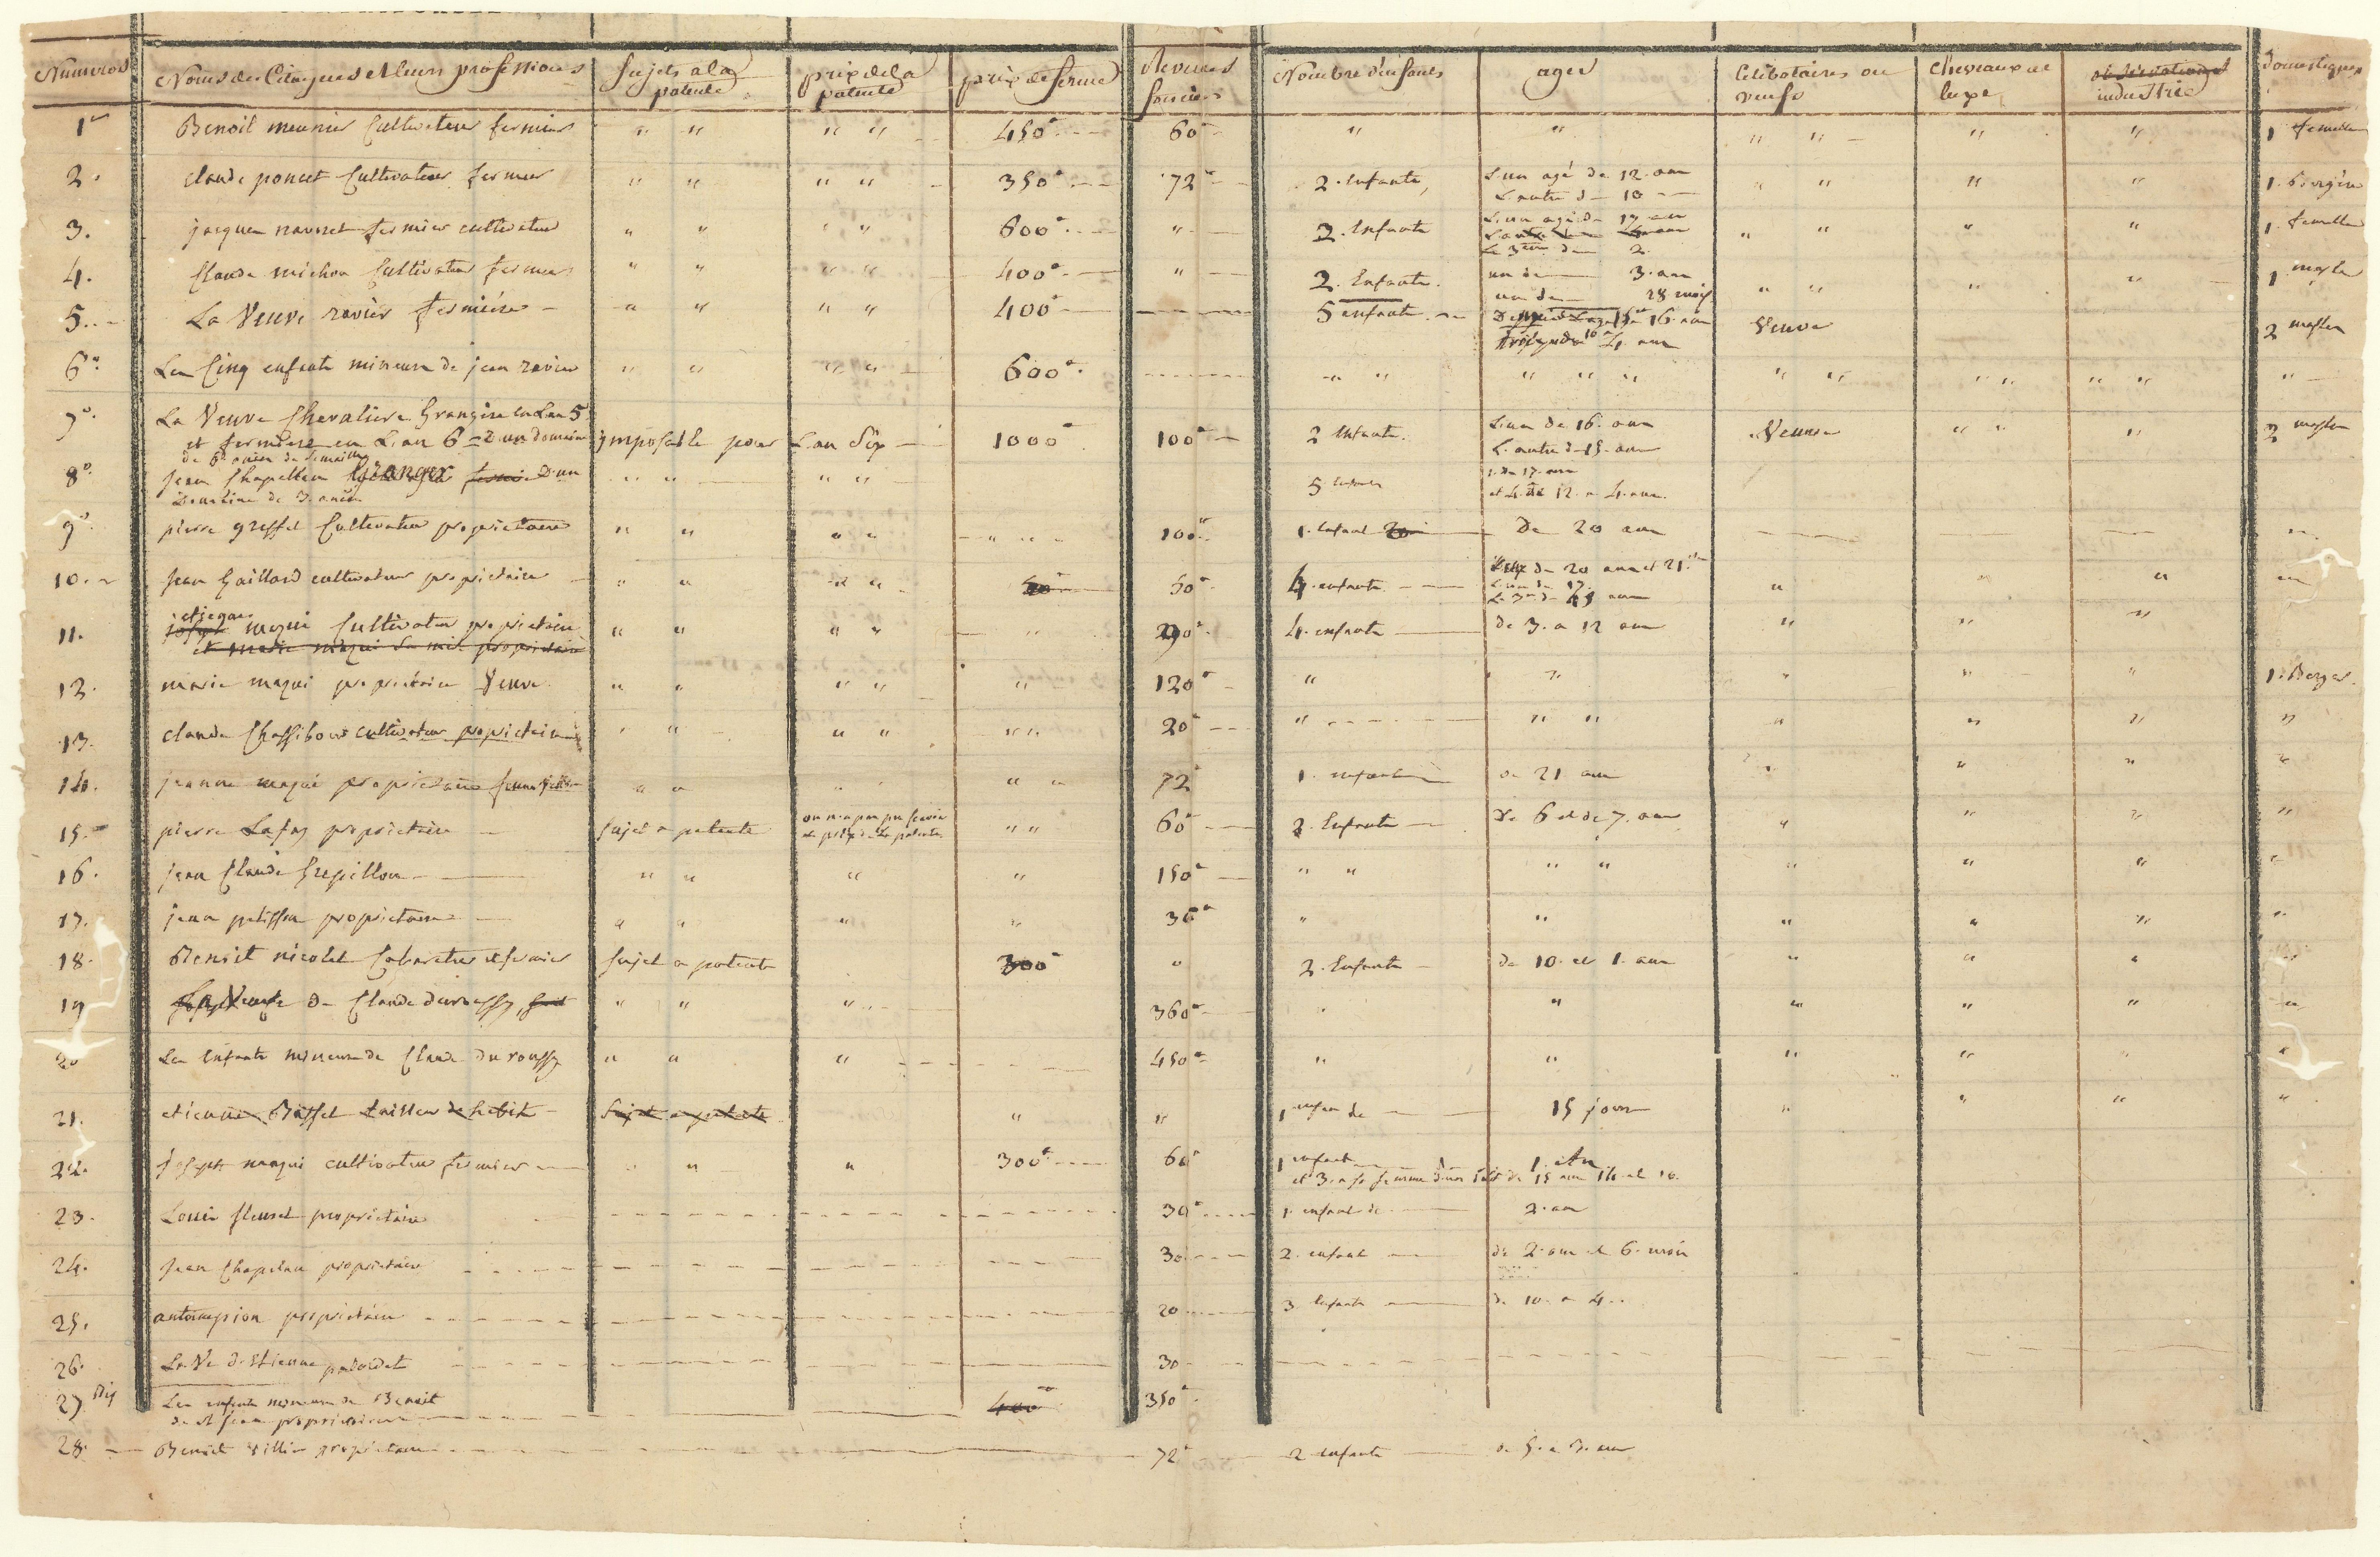 Numeros Noms des Citoyens et leurs professions Sujets a la patente prix de la patente prix de ferme Revenus fonciers Nombre d'enfants ages Celibataires ou veufs chevaux de luxe observations industrie Domestiques
1er Benoit meunier Cultivateur fermier " " " " 450 60 " " " " " " 1 femelle
2. claude poncet Cultivateur fermier " " " " 350 72 2. Enfants L'un agé de 12. ans " " " " 1. Bergère
L'autre de 10
3. jacques fermier cultivateur " " " " 600 " 3. Enfants L'un agé de 17 ans " " " " 1. femelle
Le 3eme de 2.
4. Claude michon Cultivateur fermier " " " " 400 " 2. Enfants un de 3. ans " " " " 1 masle
un de 28 mois
5. La Veuve ravier fermière " " " " 400 5 enfants 16. ans Veuve 2 masles
4. ans
6. Les Cinq enfants mineurs de jean ravier " " " " 600 " " " " " " " " " " " "
7. La Veuve Chevalier Grangère en L'an 5
et fermiere en L'an 6 d'un domaine imposable pour L'an Six 1000 100 2 Enfants. L'un de 16. ans Veuve " " " 2 masles
L'autre de 15. ans
8. jean Chapellan Granger d'un " " " " 5 Enfants 1. de 17. ans
Domaine de et 4. de 12. a 4. ans.
9. pierre greffet Cultivateur proprietaire " " " " " 100 1. Enfant De 20 ans
10. Jean Gaillard cultivateur proprietaire " " " " 50 4. enfants deux de 20 ans et 21.
L'un de 17.
11. etienne maqui Cultivateur proprietaire " " " " " 4. enfants de 3. a 12 ans " " "
et marie maqui proprietaire
12. marie maqui proprietaire Veuve " " " " " 120 " " " " " 1. Berger.
13. claude Chassibout cultivateur proprietaire " " " " " " 20 " " " " " " "
14. jeanne maqui proprietaire " " " " " " 72 1. enfant de 21 ans " " "
15. pierre Lafay proprietaire Sujet a patente on n'a pas pu savoir " " 60 2. Enfants de 6 et de 7. ans " " " "
le prix de la patente
16. jean Claude Grepillon " " " " 150 " " " " " " " "
17. jean pelisson proprietaire " " " " 36 " " " " " "
18. Benoit nicolet Cabaretier et fermier Sujet a patente 300 " 2. Enfants de 10. et 1. ans " " "
19 La Veuve de Claude " " " 360 " " " " "
20 Les Enfants mineurs de Claude du roussy " " " 450 " " " " " "
21. etienne Biffet tailleur de habits Sujet a patente " " 1 enfan de 15 jours " " " "
22. joseph maqui cultivateur fermier " " " 300 60 1 enfant 1. An
et 3. a sa femme d'un lict de 15 ans 14. et 10.
23. Louis fleuret proprietaire 30 1. enfant de 2. an
24. Jean Chapelan proprietaire 30 2. enfant de 2. ans et 6. mois
25. proprietaire 20 3 Enfants de 10. a 4.
26. La Ve d'Etienne 30
27 Les enfants mineurs de Benoit 400 350
proprietaires
28. Benoit villier proprietaire 72 2 enfants